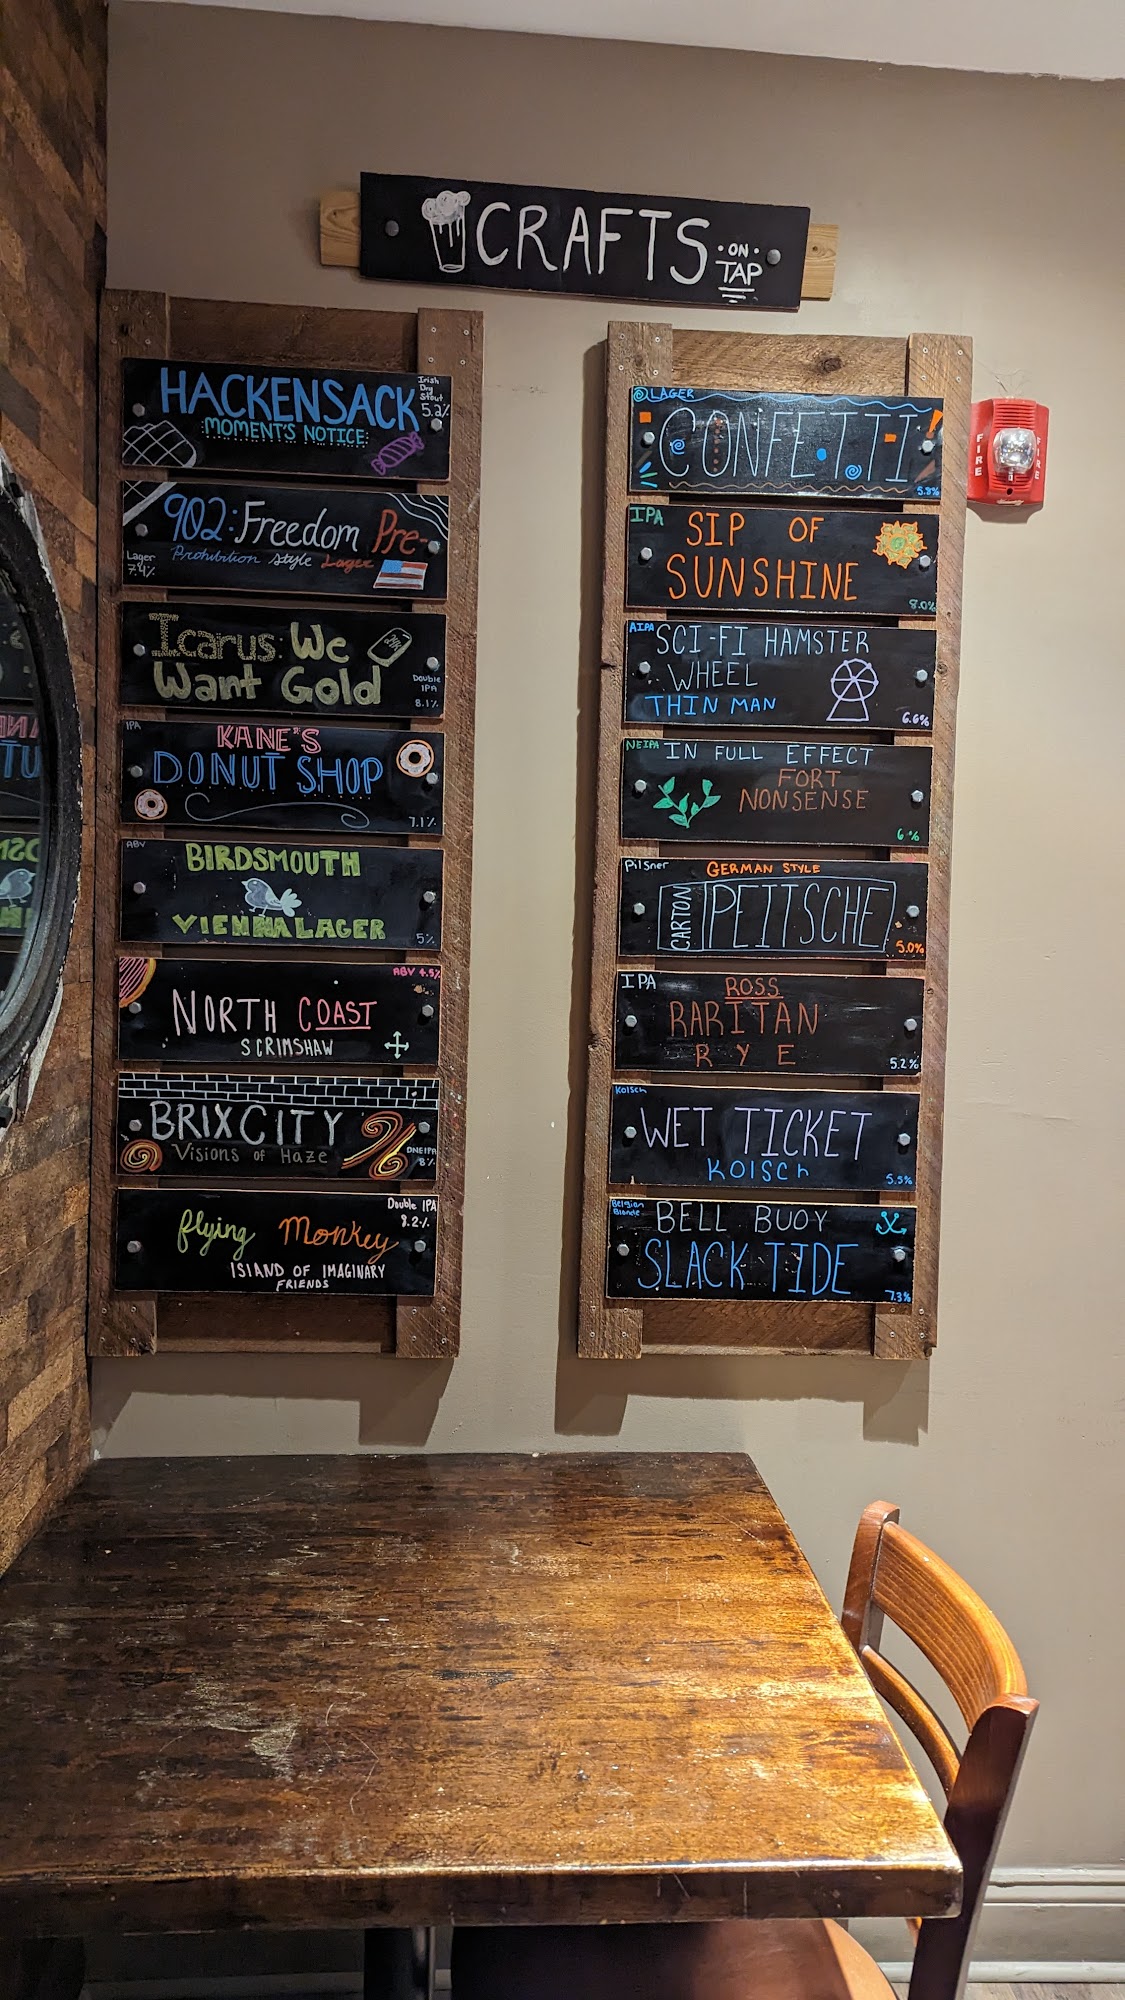 CRAFTS
• ON •
TAP
HACKENSACK
MOMENT'S NOTICE
Irish
Dry
Stout
5.2%
902: Freedom Pre-
Prohibition style Lager
Lager
7.4%
Icarus: We
Want Gold
24K
Double
IPA
8.1%
IPA
KANE'S
DONUT SHOP
7.1%
ABV
BIRDSMOUTH
VIENNA LAGER
5%
ABV 4.5%
NORTH COAST
SCRIMSHAW
BRIXCITY
Visions of Haze
DNEIPA
8%
Double IPA
8.2%
flying Monkey
ISLAND OF IMAGINARY
FRIENDS
LAGER
CONFETTI
5.8%
IPA
SIP OF
SUNSHINE
8.0%
AIPA
SCI-FI HAMSTER
WHEEL
THIN MAN
6.6%
NEIPA
IN FULL EFFECT
FORT
NONSENSE
6%
Pilsner
GERMAN STYLE
CARTON
PEITSCHE
5.0%
IPA
ROSS
RARITAN
RYE
5.2%
Kolsch
WET TICKET
KOlSch
5.5%
Belgian
Blonde
BELL BUOY
SLACK TIDE
7.3%
FIRE
FIRE